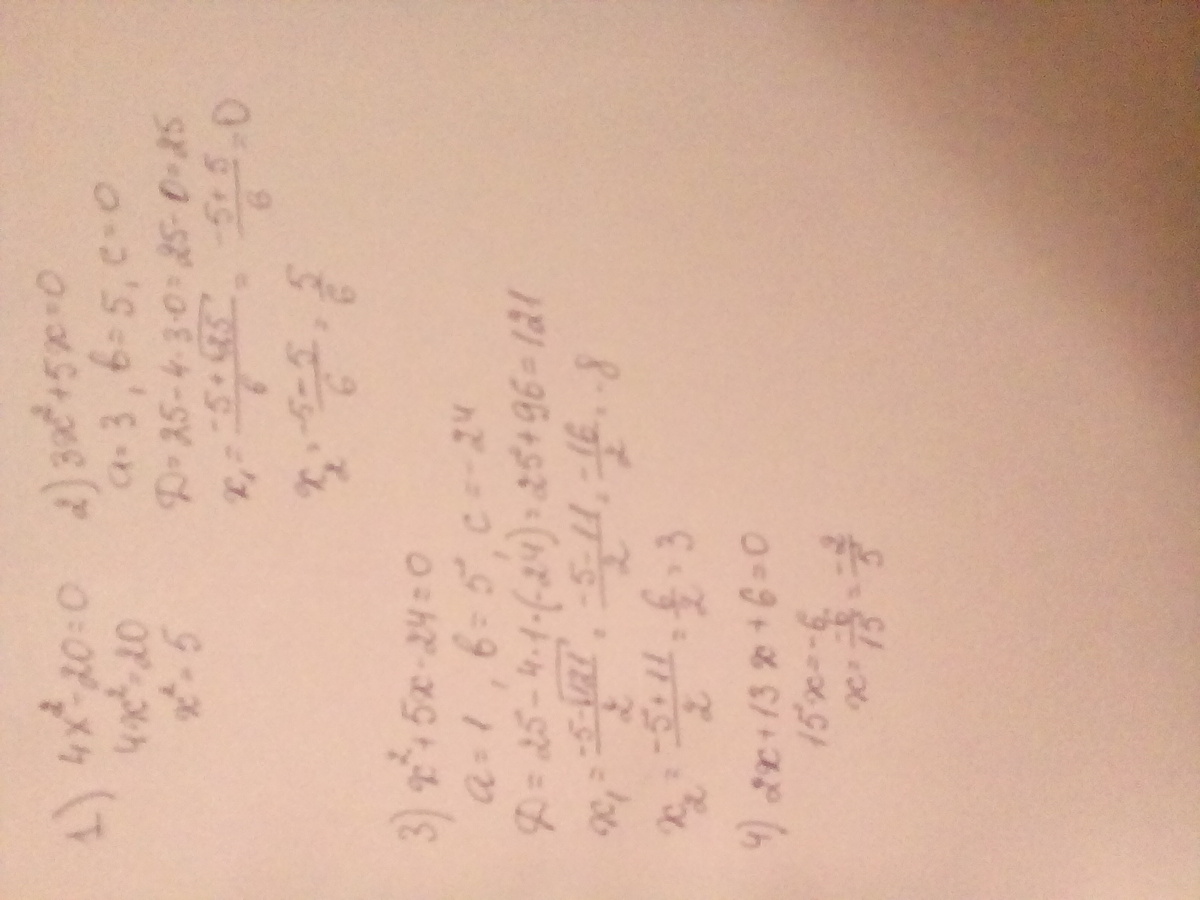 1) 4x² - 20 = 0
4x² = 20
x² = 5
2) 3x² + 5x = 0
a = 3, b = 5, c = 0
D = 25 - 4·3·0 = 25 - 0 = 25
x₁ = (-5 + √25)/6 = (-5 + 5)/6 = 0
x₂ = (-5 - 5)/6 = 5/6
3) x² + 5x - 24 = 0
a = 1, b = 5, c = -24
D = 25 - 4·1·(-24) = 25 + 96 = 121
x₁ = (-5 - √121)/2 = (-5 - 11)/2 = -16/2 = -8
x₂ = (-5 + 11)/2 = 6/2 = 3
4) 2x + 13x + 6 = 0
15x = -6
x = -6/15 = -2/5